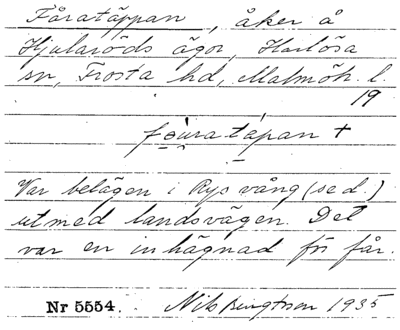 Fåratäppan, åker å
Hjularöds ägor, Harlösa
sn, Frosta hd, Malmöh. l.
19
fǫuratápan +
Var belägen i Rys vång (se d.)
utmed landsvägen. Det
var en inhägnad för får.
Nr 5554. Nils Bengtsson 1935